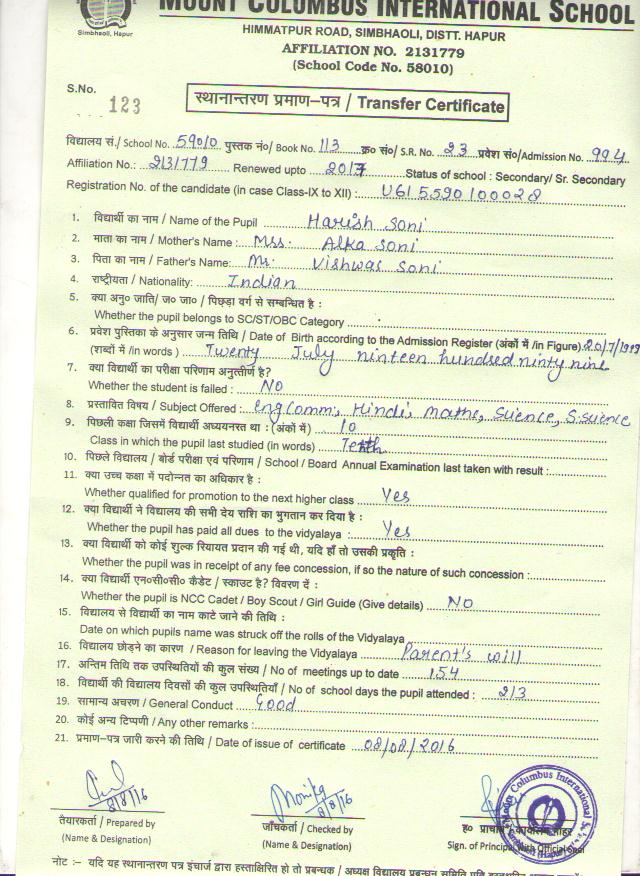 MOUNT COLUMBUS INTERNATIONAL SCHOOL
Simbhaoli, Hapur
HIMMATPUR ROAD, SIMBHAOLI, DISTT. HAPUR
AFFILIATION NO. 2131779
(School Code No. 58010)
S.No.
123
स्थानान्तरण प्रमाण–पत्र / Transfer Certificate
विद्यालय सं./ School No. 59010 पुस्तक नं०/ Book No. 113 क्र० सं०/ S.R. No. 23 प्रवेश सं०/Admission No. 994
Affiliation No.: 2131779 Renewed upto 2017 Status of school : Secondary/ Sr. Secondary
Registration No. of the candidate (in case Class-IX to XII) : U615590100028
1. विद्यार्थी का नाम / Name of the Pupil Harish Soni
2. माता का नाम / Mother's Name : Mss. Alka Soni
3. पिता का नाम / Father's Name: Mr. Vishwas Soni
4. राष्ट्रीयता / Nationality: Indian
5. क्या अनु० जाति/ ज० जा० / पिछड़ा वर्ग से सम्बन्धित है :
Whether the pupil belongs to SC/ST/OBC Category
6. प्रवेश पुस्तिका के अनुसार जन्म तिथि / Date of Birth according to the Admission Register (अंकों में /in Figure) 20/7/1999
(शब्दों में /in words ) Twenty July ninteen hundsed ninty nine
7. क्या विद्यार्थी का परीक्षा परिणाम अनुतीर्ण है?
Whether the student is failed : NO
8. प्रस्तावित विषय / Subject Offered : Eng Comm, Hindi, maths, Science, S.Science
9. पिछली कक्षा जिसमें विद्यार्थी अध्ययनरत था : (अंकों में ) 10
Class in which the pupil last studied (in words) Tenth
10. पिछले विद्यालय / बोर्ड परीक्षा एवं परिणाम / School / Board Annual Examination last taken with result :
11. क्या उच्च कक्षा में पदोन्नत का अधिकार है :
Whether qualified for promotion to the next higher class Yes
12. क्या विद्यार्थी ने विद्यालय की सभी देय राशि का भुगतान कर दिया है :
Whether the pupil has paid all dues to the vidyalaya : Yes
13. क्या विद्यार्थी को कोई शुल्क रियायत प्रदान की गई थी, यदि हाँ तो उसकी प्रकृति :
Whether the pupil was in receipt of any fee concession, if so the nature of such concession :
14. क्या विद्यार्थी एन०सी०सी० कैडेट / स्काउट है? विवरण दें :
Whether the pupil is NCC Cadet / Boy Scout / Girl Guide (Give details) NO
15. विद्यालय से विद्यार्थी का नाम काटे जाने की तिथि :
Date on which pupils name was struck off the rolls of the Vidyalaya
16. विद्यालय छोड़ने का कारण / Reason for leaving the Vidyalaya Parent's will
17. अन्तिम तिथि तक उपस्थितियों की कुल संख्य / No of meetings up to date 154
18. विद्यार्थी की विद्यालय दिवसों की कुल उपस्थितियाँ / No of school days the pupil attended : 213
19. सामान्य अचरण / General Conduct Good
20. कोई अन्य टिप्पणी / Any other remarks :
21. प्रमाण-पत्र जारी करने की तिथि / Date of issue of certificate 08/08/2016
8/8/16
Monika
8/8/16
Columbus International
तैयारकर्ता / Prepared by
(Name & Designation)
जाँचकर्ता / Checked by
(Name & Designation)
ह० प्राचार्य कार्यालय मोहर
Sign. of Principal With Official Seal
नोट :– यदि यह स्थानान्तरण पत्र इंचार्ज द्वारा हस्ताक्षिरित हो तो प्रबन्धक / अध्यक्ष विद्यालय प्रबन्धन समिति